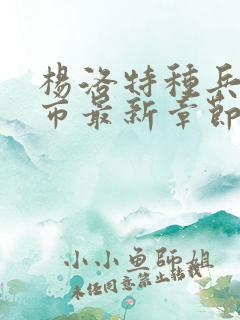 楊洛特種兵
市最新章節
小小魚師姐
未经同意禁止转载